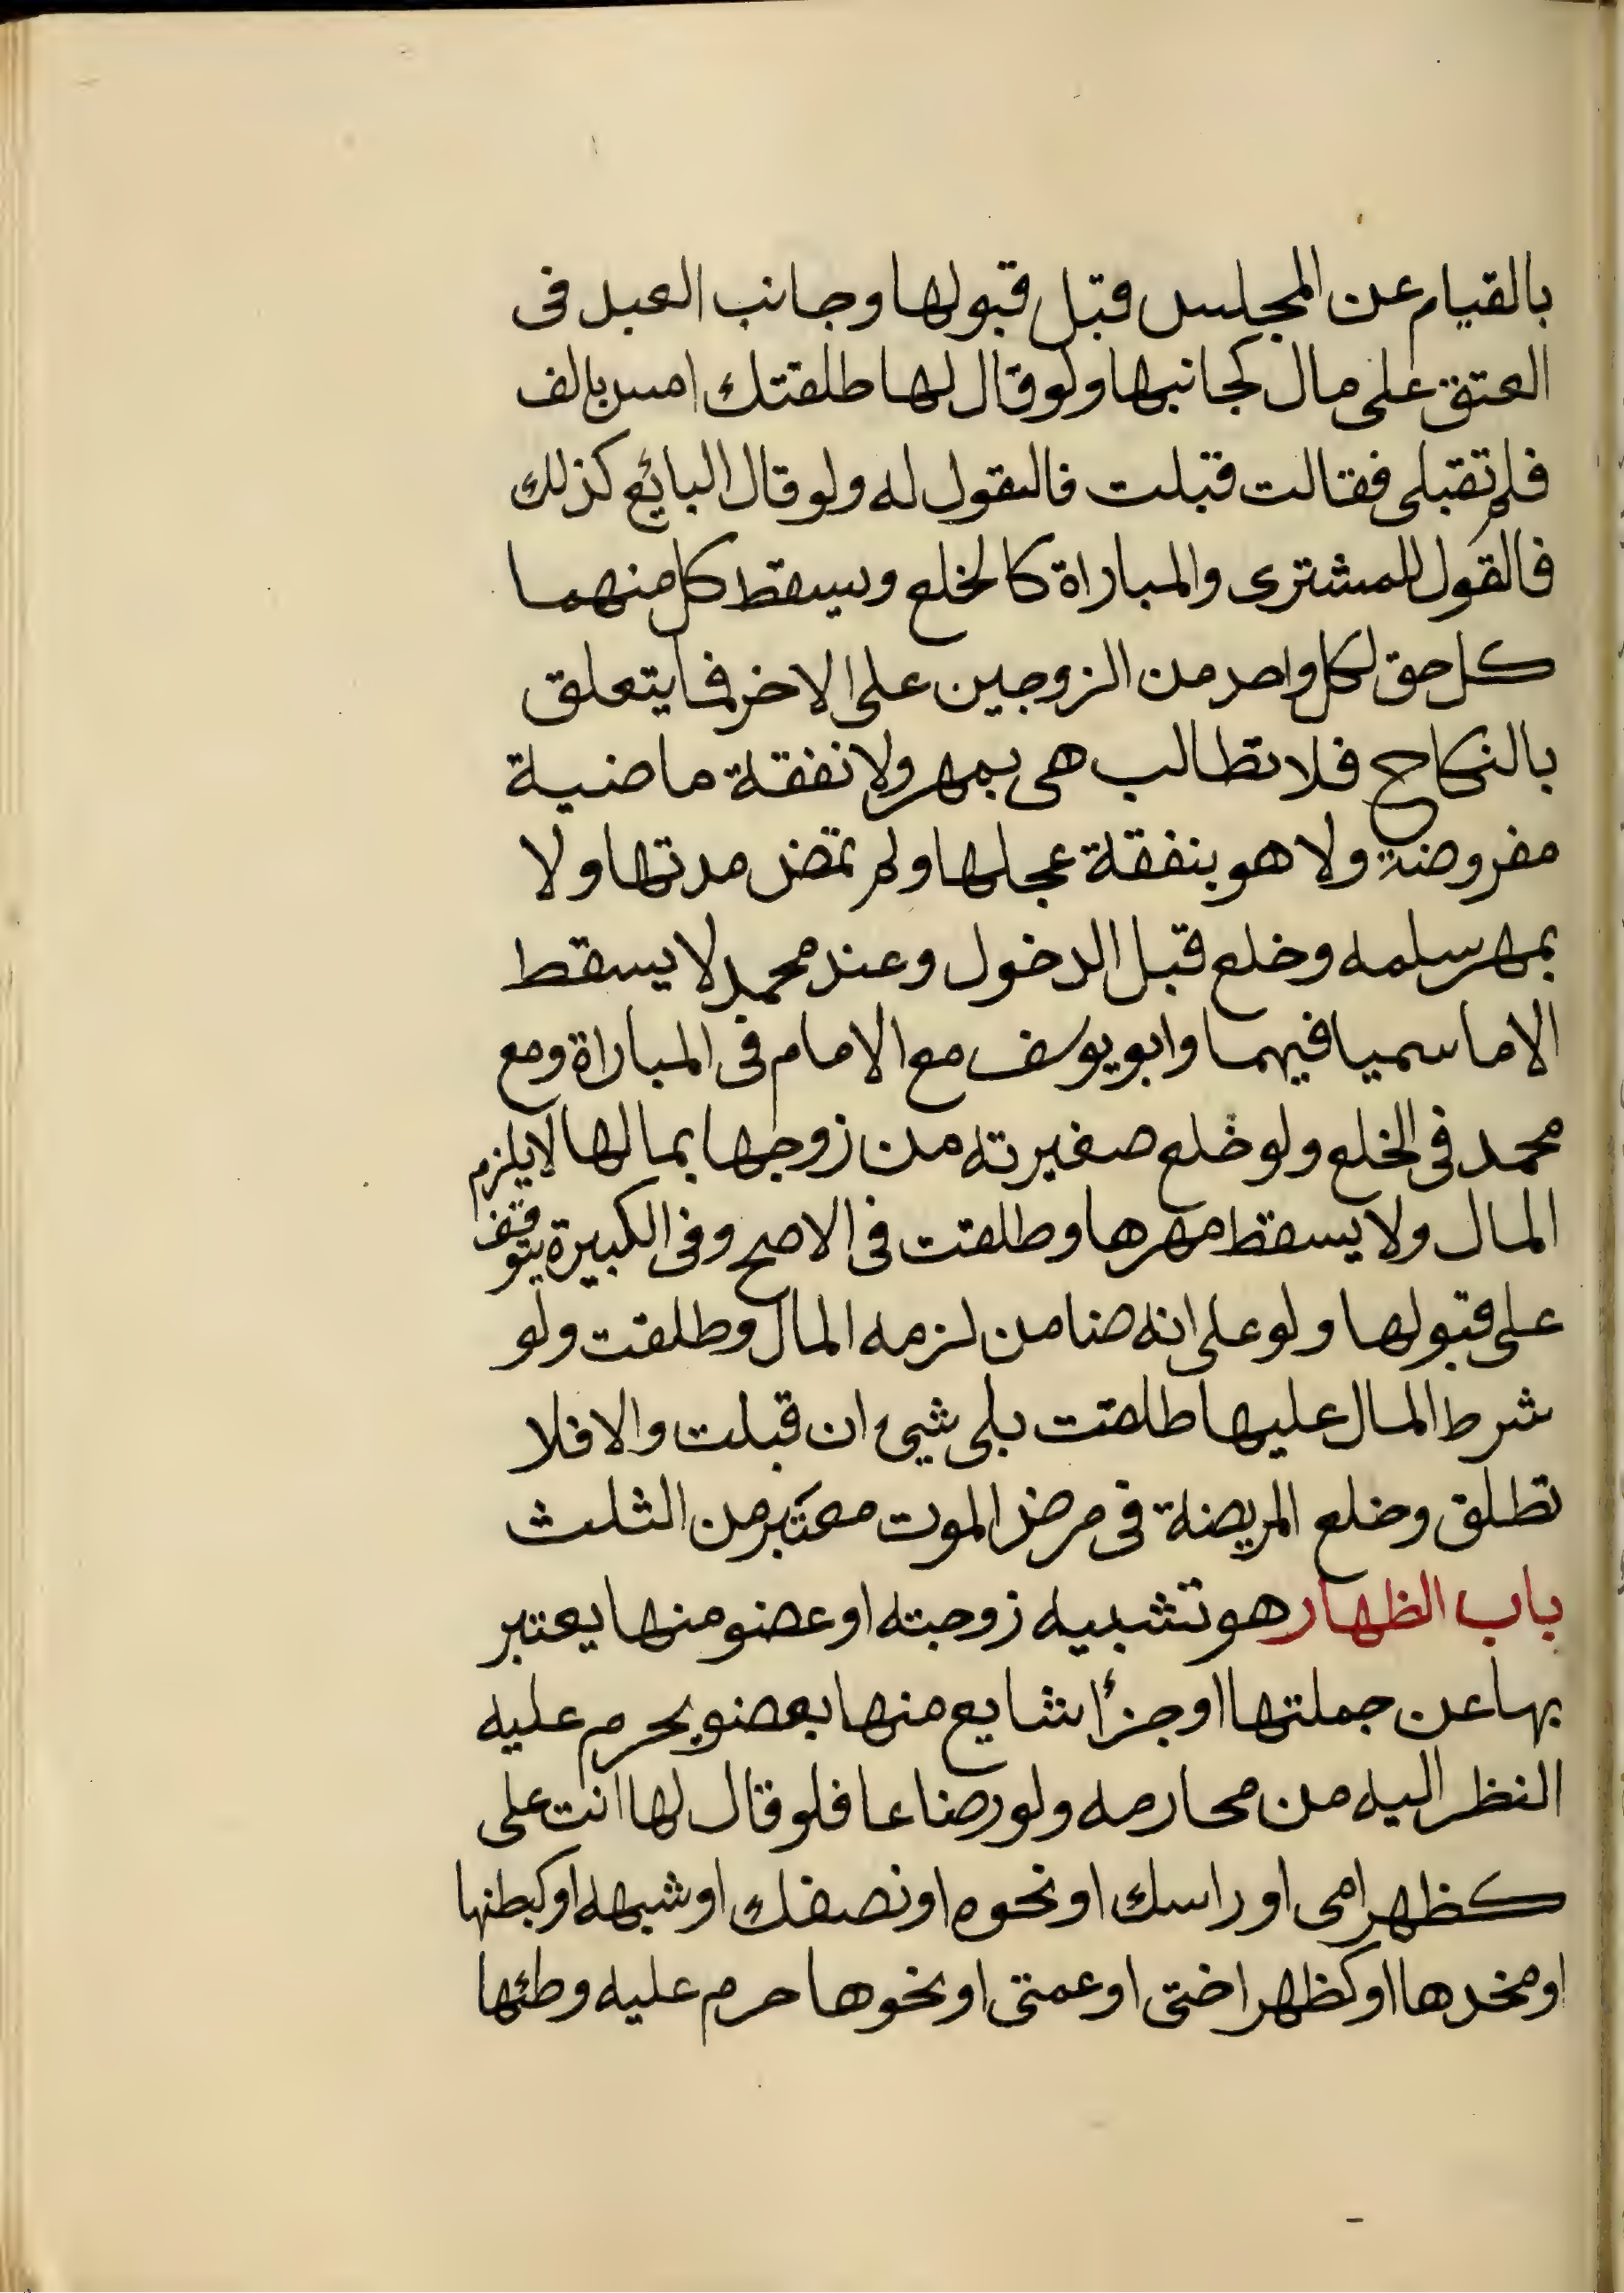 بالقيام عن المجلس قبل قبولها وجانب العبد فى
العتق على مال كجانبها ولو قال لها طلقتك امس بالف
فلم تقبلى فقالت قبلت فالقول له ولو قال البائع كذلك
فالقول للمشترى والمباراة كالخلع ويسقط كل منهما
كل حق لكل واحد من الزوجين على الاخر فيما يتعلق
بالنكاح فلا تطالب هى بمهر ولا نفقة ماضية
مفروضة ولا هو بنفقة عجلها ولم تمض مدتها ولا
بمهر سلمه وخلع قبل الدخول وعند محمد لا يسقط
الا ما سميا فيهما وابو يوسف مع الامام فى المباراة ومع
محمد فى الخلع ولو خلع صغيرته من زوجها بمالها لا يلزم
المال ولا يسقط مهرها وطلقت فى الاصح وفى الكبيرة يتوقف
على قبولها ولو على انه ضامن لزمه المال وطلقت ولو
شرط المال عليها طلقت بلى شيئ ان قبلت والا فلا
تطلق وخلع المريضة فى مرض الموت معتبر من الثلث
باب الظهار هو تشبيه زوجته او عضو منها يعتبر
بها عن جملتها او جزأ شايع منها بعضو يحرم عليه
النظر اليه من محارمه ولو رضاعا فلو قال لها انت على
كظهر امى او راسك او نحوه او نصفك او شبهه او كبطنها
او فخدها او كظهر اختى او عمتى او نحوها حرم عليه وطئها